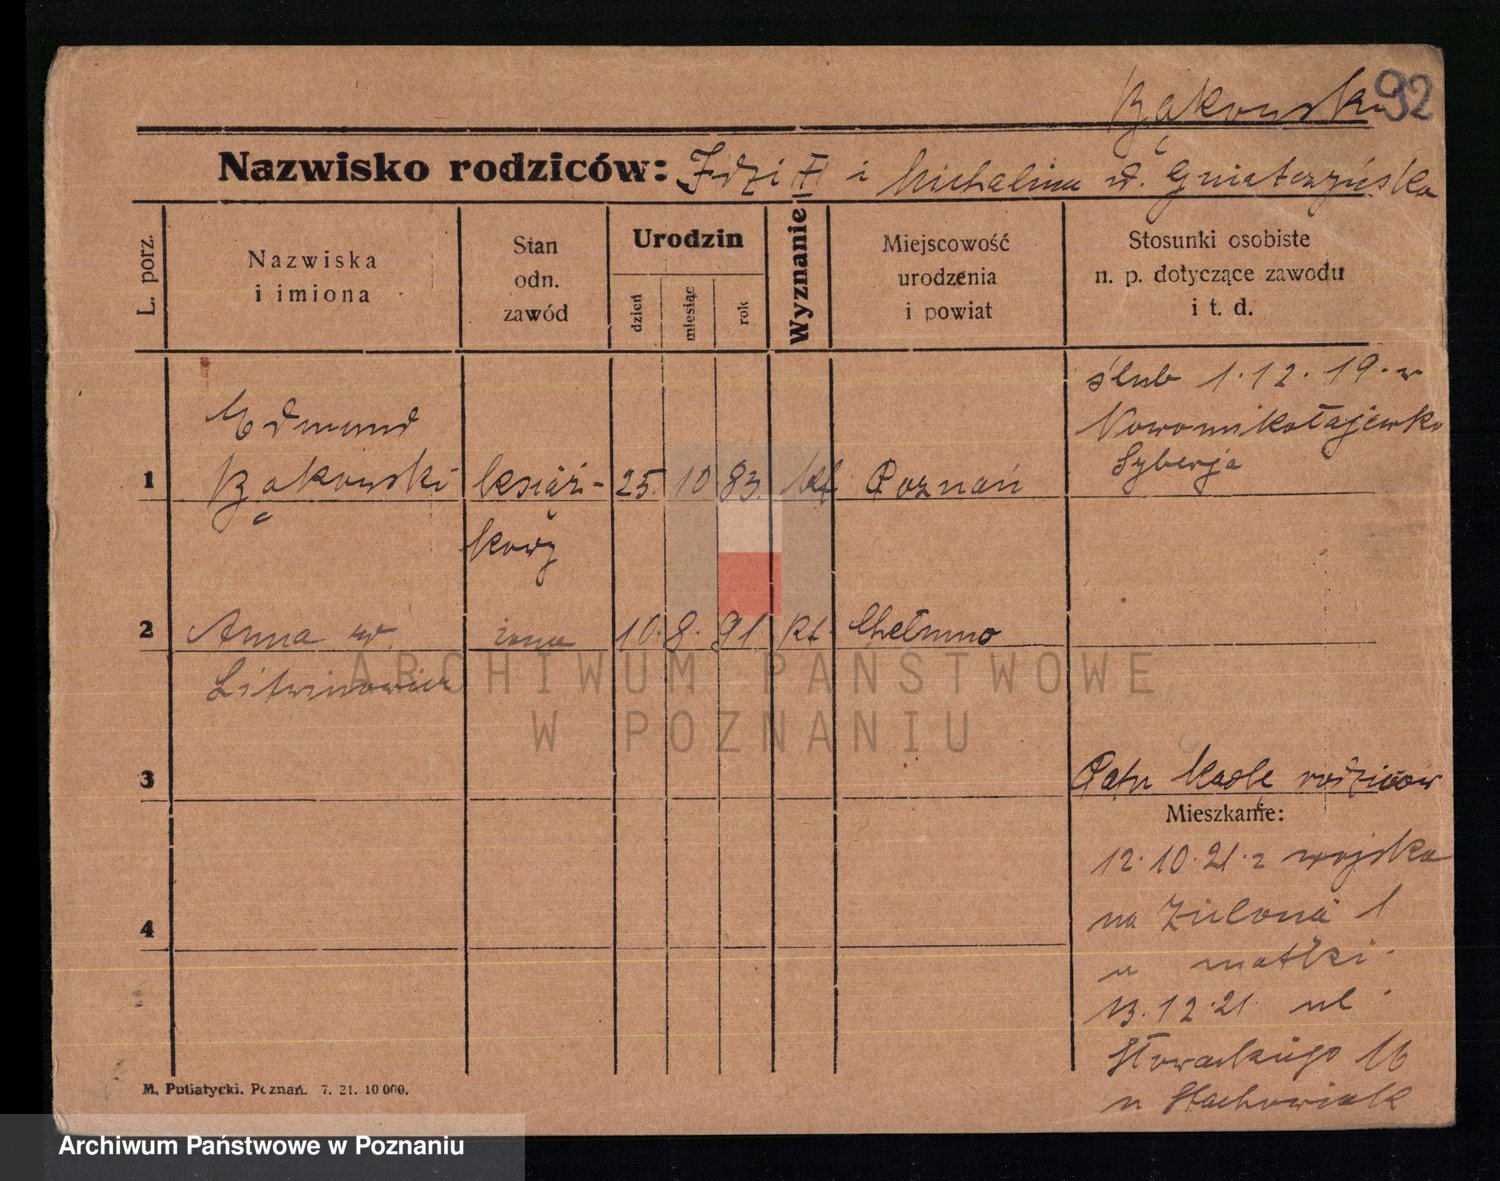 Bąkowski 92
Nazwisko rodziców: Idzi i Michalina d. Gniatczyńska
L. porz.
Nazwiska
i imiona
Stan
odn.
zawód
Urodzin
dzień
miesiąc
rok
Wyznanie
Miejscowość
urodzenia
i powiat
Stosunki osobiste
n. p. dotyczące zawodu
i t. d.
ślub 1.12.19. w
Nowomikołajewko
Syberja
Edmund
1 Bąkowski książ- 25. 10 83. kt Poznań
kowy
2 Anna żona 10. 8. 91. kt. Chełmno
Litwinowicz
ARCHIWUM PAŃSTWOWE
W POZNANIU
3 Patrz kartę rodziców
Mieszkanie:
12.10.21. z wojska
na Zieloną 1
4
u matki.
13.12.21 ul.
Słowackiego 16
u Stachowiak
M. Putiatycki. Poznań. 7. 21. 10 000.
Archiwum Państwowe w Poznaniu